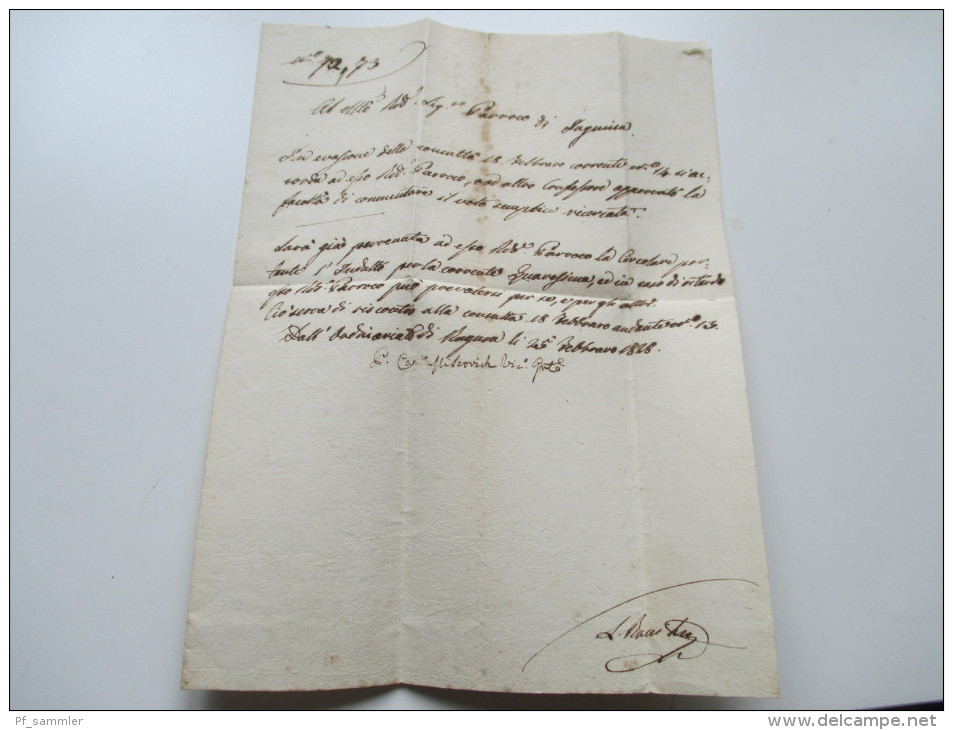 N.º 72, 73
Al Parroco di
In evasione della consulta 18 Febbraro corrente N.º 14 s'ac-
corda ad esso Rdo. Parroco, e ad altro Confessore approvato la
facoltà di commutare il voto semplice ricercato.
Sarà già pervenuta ad esso Rdo. Parroco la Circolare por-
tante l'Indulto per la corrente Quaresima, ed in caso di ritardo
esso Rdo. Parroco può prevalersi per se, e per gli altri.
Ciò serva di riscontro alla consulta 18 Febbraro andante N.º 13.
Dall'Ordinariato di Ragusa li 25 Febbraro 1818.
Vic.º
Pf_sammler
www.delcampe.net